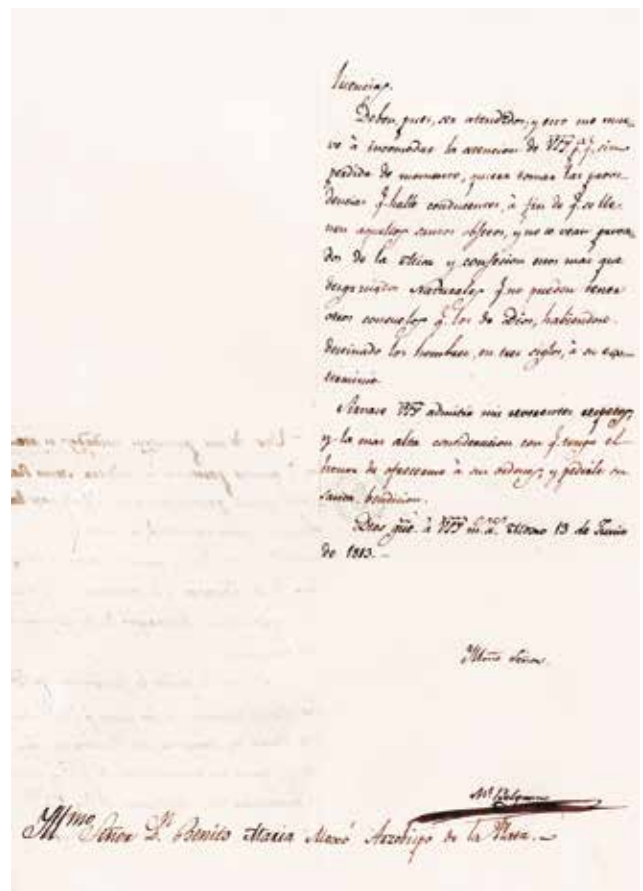 lucencias.
Deben, pues, ser atendidos, y esto me mue-
ve à incomodar la atencion de VSY p.ª q.ᵉ, sin
perdida de momento, quiera tomar las provi-
dencias q.ᵉ halle conducentes, à fin de q.ᵉ se lle-
nen aquellos santos objetos, y no se vean priva-
dos de la Misa y confesion unos mas que
desgraciados Naturales q.ᵉ no pueden tener
otros consuelos q.ᵉ los de Dios, habiendose
destinado los hombres, en tres siglos, à su ex-
terminio.
Sirvase VSY admitir mis reverentes respetos,
y la mas alta consideracion con q.ᵉ tengo el
honor de ofrecerme à sus ordenes, y pedirle su
santa bendicion.
Dios gũe. à VSY m.ˢ a.ˢ 13 de Junio
de 1813. -
Yllmo Señor.
M.ˡ Belgrano
Yll.ᵐᵒ Señor D.ⁿ Benito Maria Moxó Arzobispo de la Plata. -